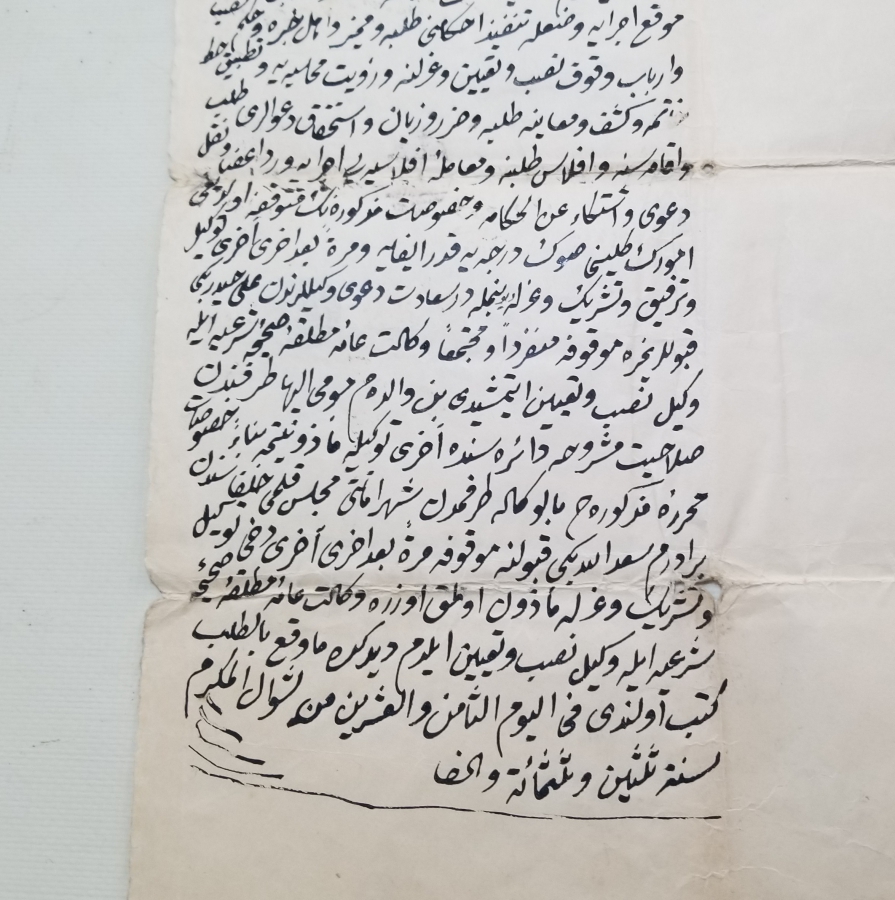 موقع اجرایه وضعله تنفیذ احکامنی طلبه وممیز واهل خبره و حکم نصب
وارباب وقوف نصب وتعیین وعزلنه ورؤیت محاسبه یه و تطبیق خط
ختم وکشف ومعاینه طلبه وضرر وزیان و استحقاق دعوالری طلب
واقامه سنه وافلاس طلبنه ومعاملهٔ افلاسیه یی اجرایه ورد اعضا ونقل
دعوی واشتکاء عن الحکامه وخصوصات مذکوره نک متوقفه اولدیغی
امورک طلبنی صوک درجه یه قدر ایفایه ومرة بعد اخری آخری توکیل
وترفیق وتشریک وعزله درسعادت دعوی وکیللرندن علی حیدر بکی
قبوللرینه موقوفه منفردا و مجتمعا وکالت عامهٔ مطلقهٔ صحیحهٔ شرعیه ایله
وکیل نصب وتعیین ایتمشیدی بن والده م مومی الیها طرفندن
صلاحیت مشروحه دائره سنده آخری توکیله مأذونیتمه بناءً خصوصات
محررهٔ مذکوره ده بالوکاله طرفمدن شهر امانتی مجلس قلمی خلفاسندن
برادرم سعد الله بکی قبولنه موقوفه مرة بعد اخری آخری دخی توکیل
وتشریک وعزله مأذون اولمق اوزره وکالت عامهٔ مطلقهٔ صحیحهٔ
شرعیه ایله وکیل نصب وتعیین ایلدم دیدکده ماوقع بالطلب
کتب اولندی فی الیوم الثامن والعشرین من شوال المکرم
لسنة ثلثین وثلثمائة والف